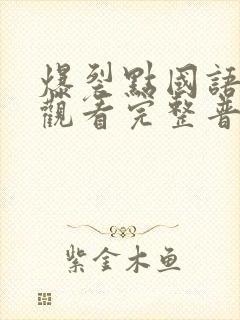 爆裂點國語
觀看完整普
紫金木鱼